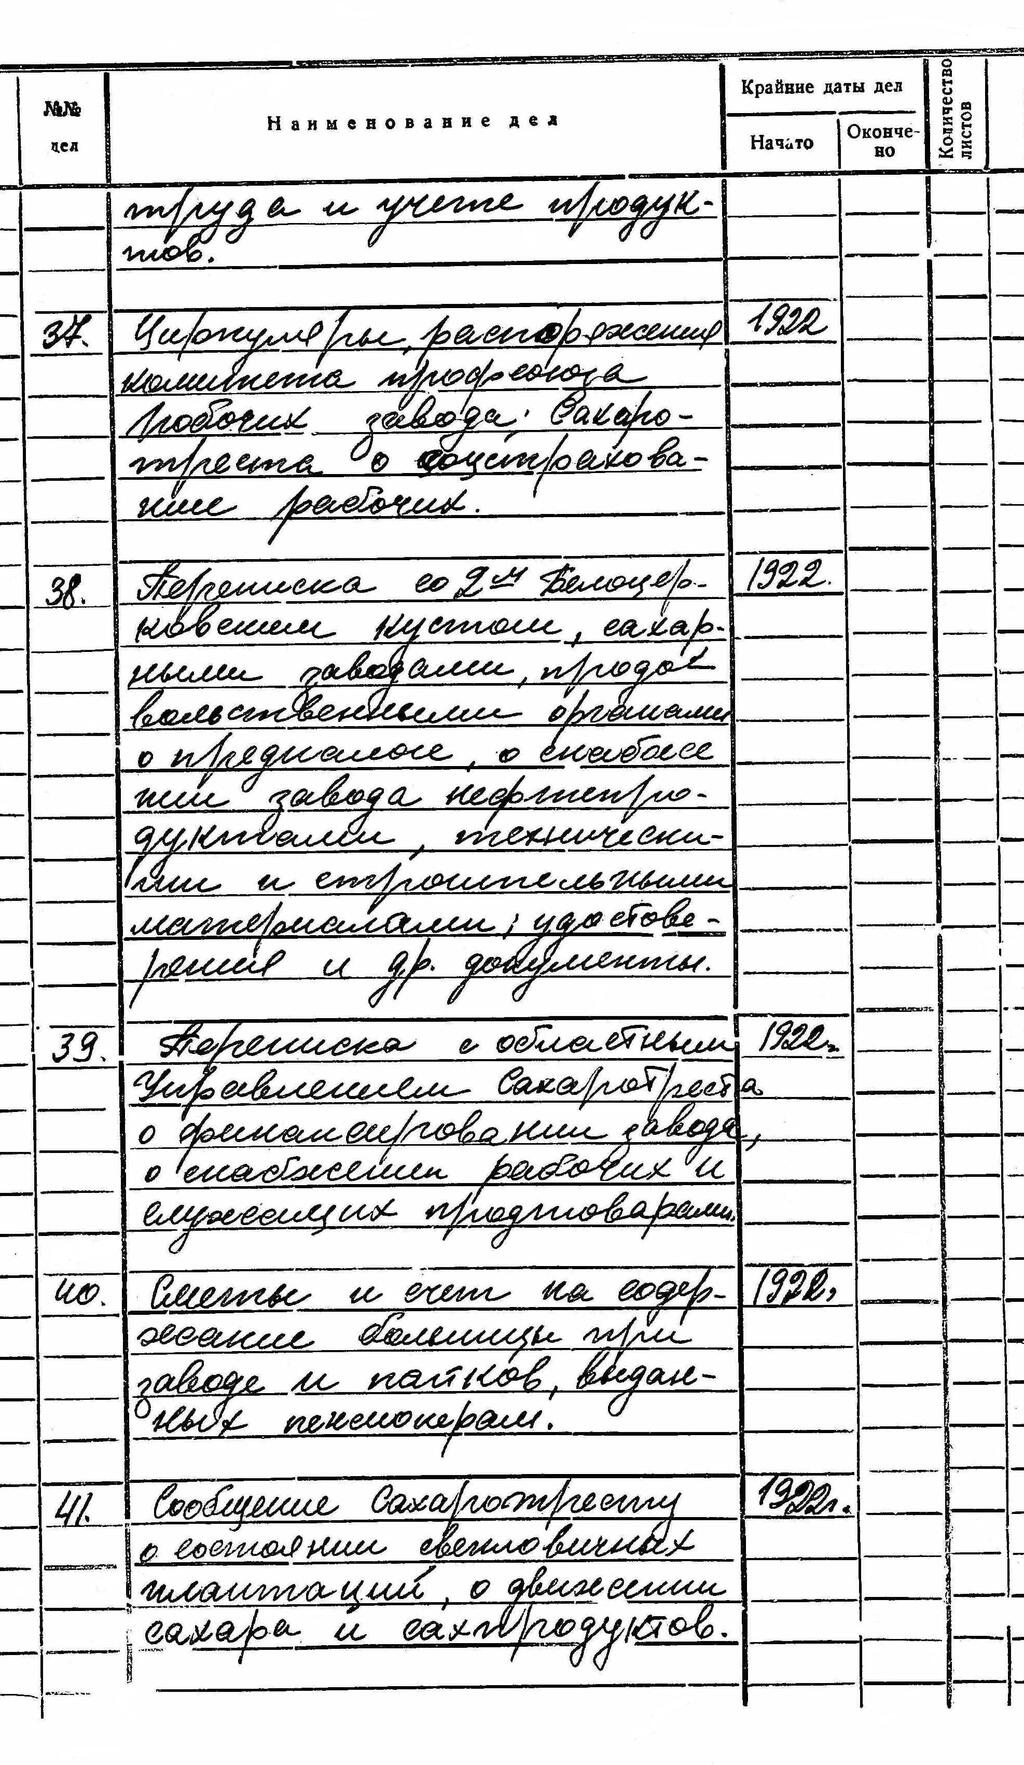 №№ дел
Наименование дел
Крайние даты дел
Начато
Окончено
Количество листов
труда и учете продук-
тов.
37. Циркуляры, распоряжения 1922
комитета профсоюза
рабочих завода; Сахаро-
треста о соцстрахова-
нии рабочих.
38. Переписка со 2м Белоцер- 1922.
ковским кустом, сахар-
ными заводами, продо
вольственными органами
о продналоге, о снабже
нии завода нефтепро-
дуктами, технически-
ми и строительными
материалами; удостове-
рения и др. документы.
39. Переписка с областным 1922г.
Управлением Сахаротреста
о финансировании завода,
о снабжении рабочих и
служащих продтоварами.
40. Сметы и счет на содер- 1922г.
жание больницы при
заводе и пайков, выдан-
ных пенсионерам.
41. Сообщение Сахаротресту 1922г.
о состоянии свекловичных
плантаций, о движении
сахара и сахпродуктов.